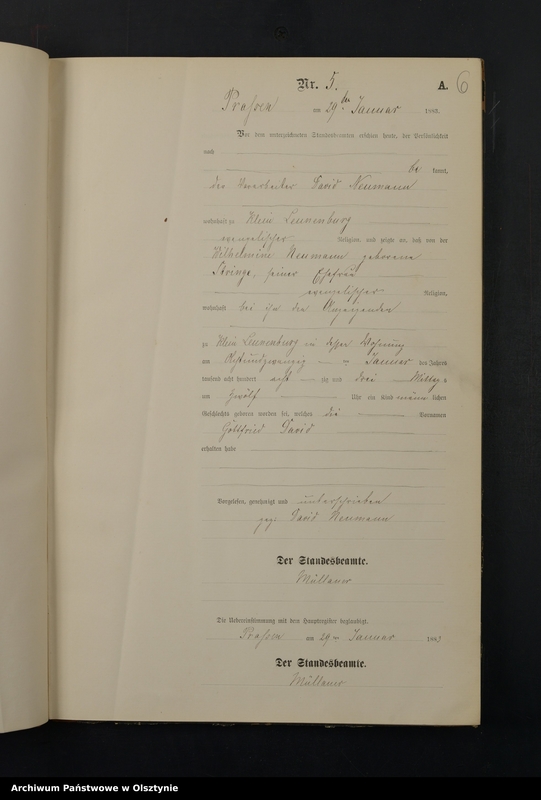 Nr. 5.
A. 6
am 29ten Januar 1883.
Vor dem unterzeichneten Standesbeamten erschien heute, der Persönlichkeit
nach
be kannt,
der David Neumann
wohnhaft zu Klein Leunenburg
evangelischer Religion, und zeigte an, daß von der
Wilhelmine Neumann geborene
seiner Ehefrau
evangelischer Religion,
wohnhaft bei ihm dem Anzeigenden
zu Klein Leunenburg in dessen Wohnung
am Achtundzwanzigsten Januar des Jahres
tausend acht hundert acht zig und drei Mittags
um zwölf Uhr ein Kind männ lichen
Geschlechts geboren worden sei, welches die Vornamen
Gottfried David
erhalten habe
Vorgelesen, genehmigt und unterschrieben
gez: David Neumann
Der Standesbeamte.
Die Uebereinstimmung mit dem Hauptregister beglaubigt.
am 29ten Januar 1883
Der Standesbeamte.
Archiwum Państwowe w Olsztynie